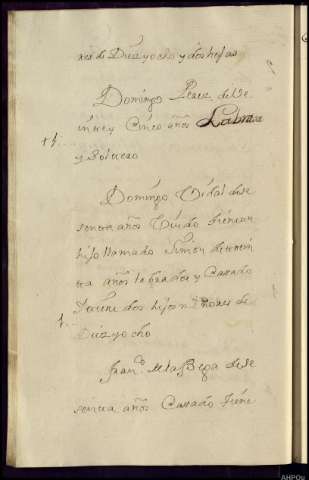 res de Diez y ocho y dos hijas
Domingo Perez de Ve
inte y Cinco años Labra
+ 1.
y Soltero
Domingo Vidal de se
senta años Viudo tiene un
hijo llamado Simon de trein
ta años labrador y Casado
tiene dos hijos Menores de
1.
Diez y ocho
Fran.co de la Bega de se
senta años Casado tiene
AHPOu